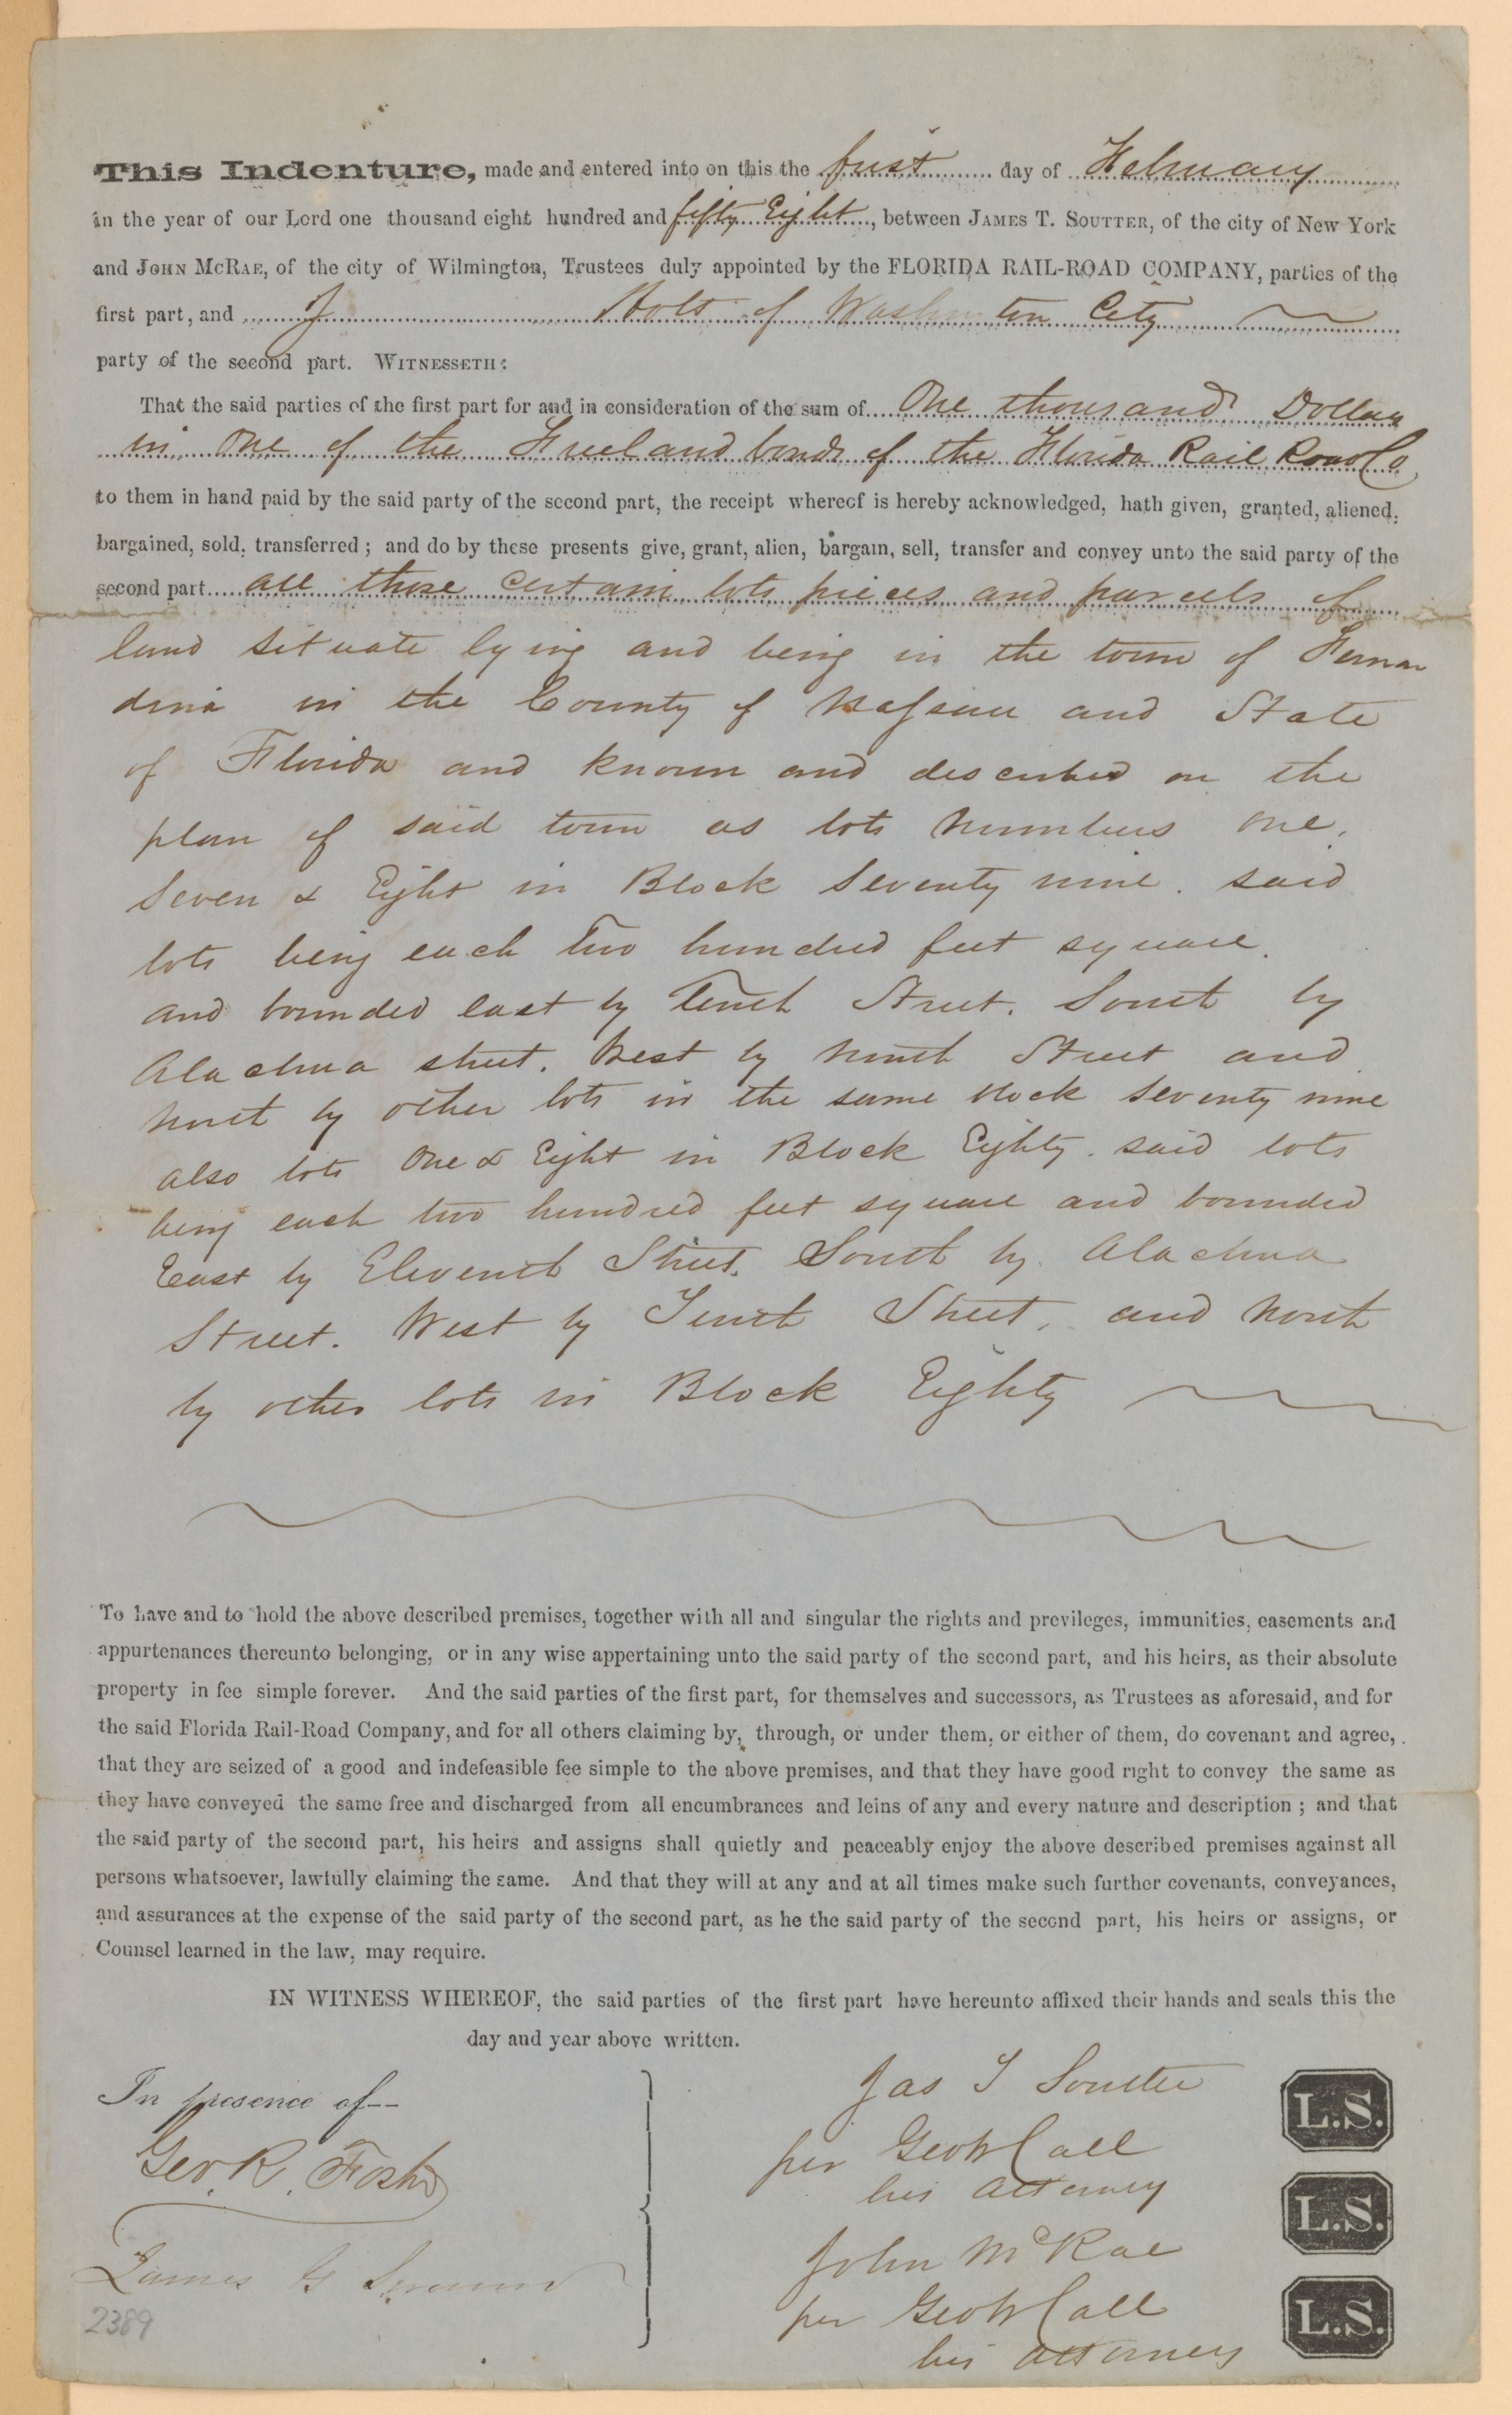 This Indenture, made and entered into on this the first day of February
in the year of our Lord one thousand eight hundred and fifty Eight, between JAMES T. SOUTTER, of the city of New York
and JOHN MCRAE, of the city of Wilmington, Trustees duly appointed by the FLORIDA RAIL-ROAD COMPANY, parties of the
first part, and J Holt of Washington City
party of the second part. WITNESSETH:
That the said parties of the first part for and in consideration of the sum of One thousand Dollars
in one of the Freeland bonds of the Florida Rail Road Co
to them in hand paid by the said party of the second part, the receipt whereof is hereby acknowledged, hath given, granted, aliened,
bargained, sold, transferred; and do by these presents give, grant, alien, bargain, sell, transfer and convey unto the said party of the
second part all those certain lots pieces and parcels of
land situate lying and being in the town of Fernan
dina in the County of Nassau and State
of Florida and known and described on the
plan of said town as lots numbers one,
Seven & Eight in Block Seventy nine. said
lots being each Two hundred feet square.
and bounded east by Tenth Street. South by
Alachua street. West by Ninth Street and
North by other lots in the same block Seventy nine
also lots One & Eight in Block Eighty. said lots
being each two hundred feet square and bounded
East by Eleventh Street. South by Alachua
Street. West by Tenth Street, and North
by other lots in Block Eighty
To have and to hold the above described premises, together with all and singular the rights and previleges, immunities, easements and
appurtenances thereunto belonging, or in any wise appertaining unto the said party of the second part, and his heirs, as their absolute
property in fee simple forever. And the said parties of the first part, for themselves and successors, as Trustees as aforesaid, and for
the said Florida Rail-Road Company, and for all others claiming by, through, or under them, or either of them, do covenant and agree,
that they are seized of a good and indefeasible fee simple to the above premises, and that they have good right to convey the same as
they have conveyed the same free and discharged from all encumbrances and leins of any and every nature and description; and that
the said party of the second part, his heirs and assigns shall quietly and peaceably enjoy the above described premises against all
persons whatsoever, lawfully claiming the same. And that they will at any and at all times make such further covenants, conveyances,
and assurances at the expense of the said party of the second part, as he the said party of the second part, his heirs or assigns, or
Counsel learned in the law, may require.
IN WITNESS WHEREOF, the said parties of the first part have hereunto affixed their hands and seals this the
day and year above written.
In presence of--
Geo. R. Foster
James G
2389
Jas T Soutter
per Geo W Call
his Attorney
John McRae
per Geo W Call
his Attorney
L.S.
L.S.
L.S.